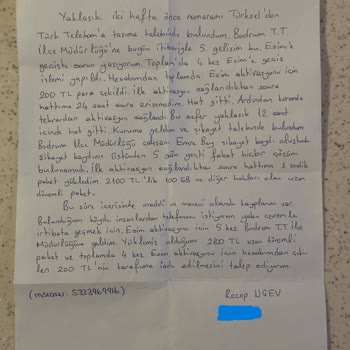 Yaklaşık iki hafta önce numaramı Türksel'den
Türk Telekom'a taşıma talebinde bulundum. Bodrum T.T.
İlçe Müdürlüğü'ne bugün itibariyle 5. gelişim bu. Esim'e
geçişte sorun yaşıyorum. Toplam'da 4 kez Esim'e geçiş
işlemi yapıldı. Hesabımdan toplamda Esim aktivasyonu için
200 TL para çekildi. İlk aktivasyon sağlandıktan sonra
hattıma 24 saat sonra erişemedim. Hat gitti. Ardından kurumda
tekrardan aktivasyon sağlandı. Bu sefer yaklaşık 12 saat
içinde hat gitti. Kuruma geldim ve şikayet talebinde bulundum
Bodrum İlçe Müdürlüğü çalışanı Emre Bey kaydı oluşturdu
şikayet kaydının üstünden 5 gün geçti fakat hiçbir çözüm
bulunamadı. İlk aktivasyon sağlandıktan sonra hattıma 1 senelik
paket yükledim 2100 TL'lik 100 GB ve diğer hakları olan uzun
dönemli paket.
Bu süre içerisinde maddi ve manevi olarak kayıplarım var.
Bulunduğum köyde insanlardan telefonunu istiyorum yakın çevremle
irtibata geçmek için. Esim aktivasyonu için 5 kez Bodrum T.T İlçe
Müdürlüğüne geldim. Yüklemiş olduğum 2100 TL uzun dönemli
paket ve toplamda 4 kez Esim aktivasyonu için hesabımdan çeki-
len 200 TL'nin tarafıma iade edilmesini talep ediyorum.
(MSISDN: 5333969916)
Recep UGEV